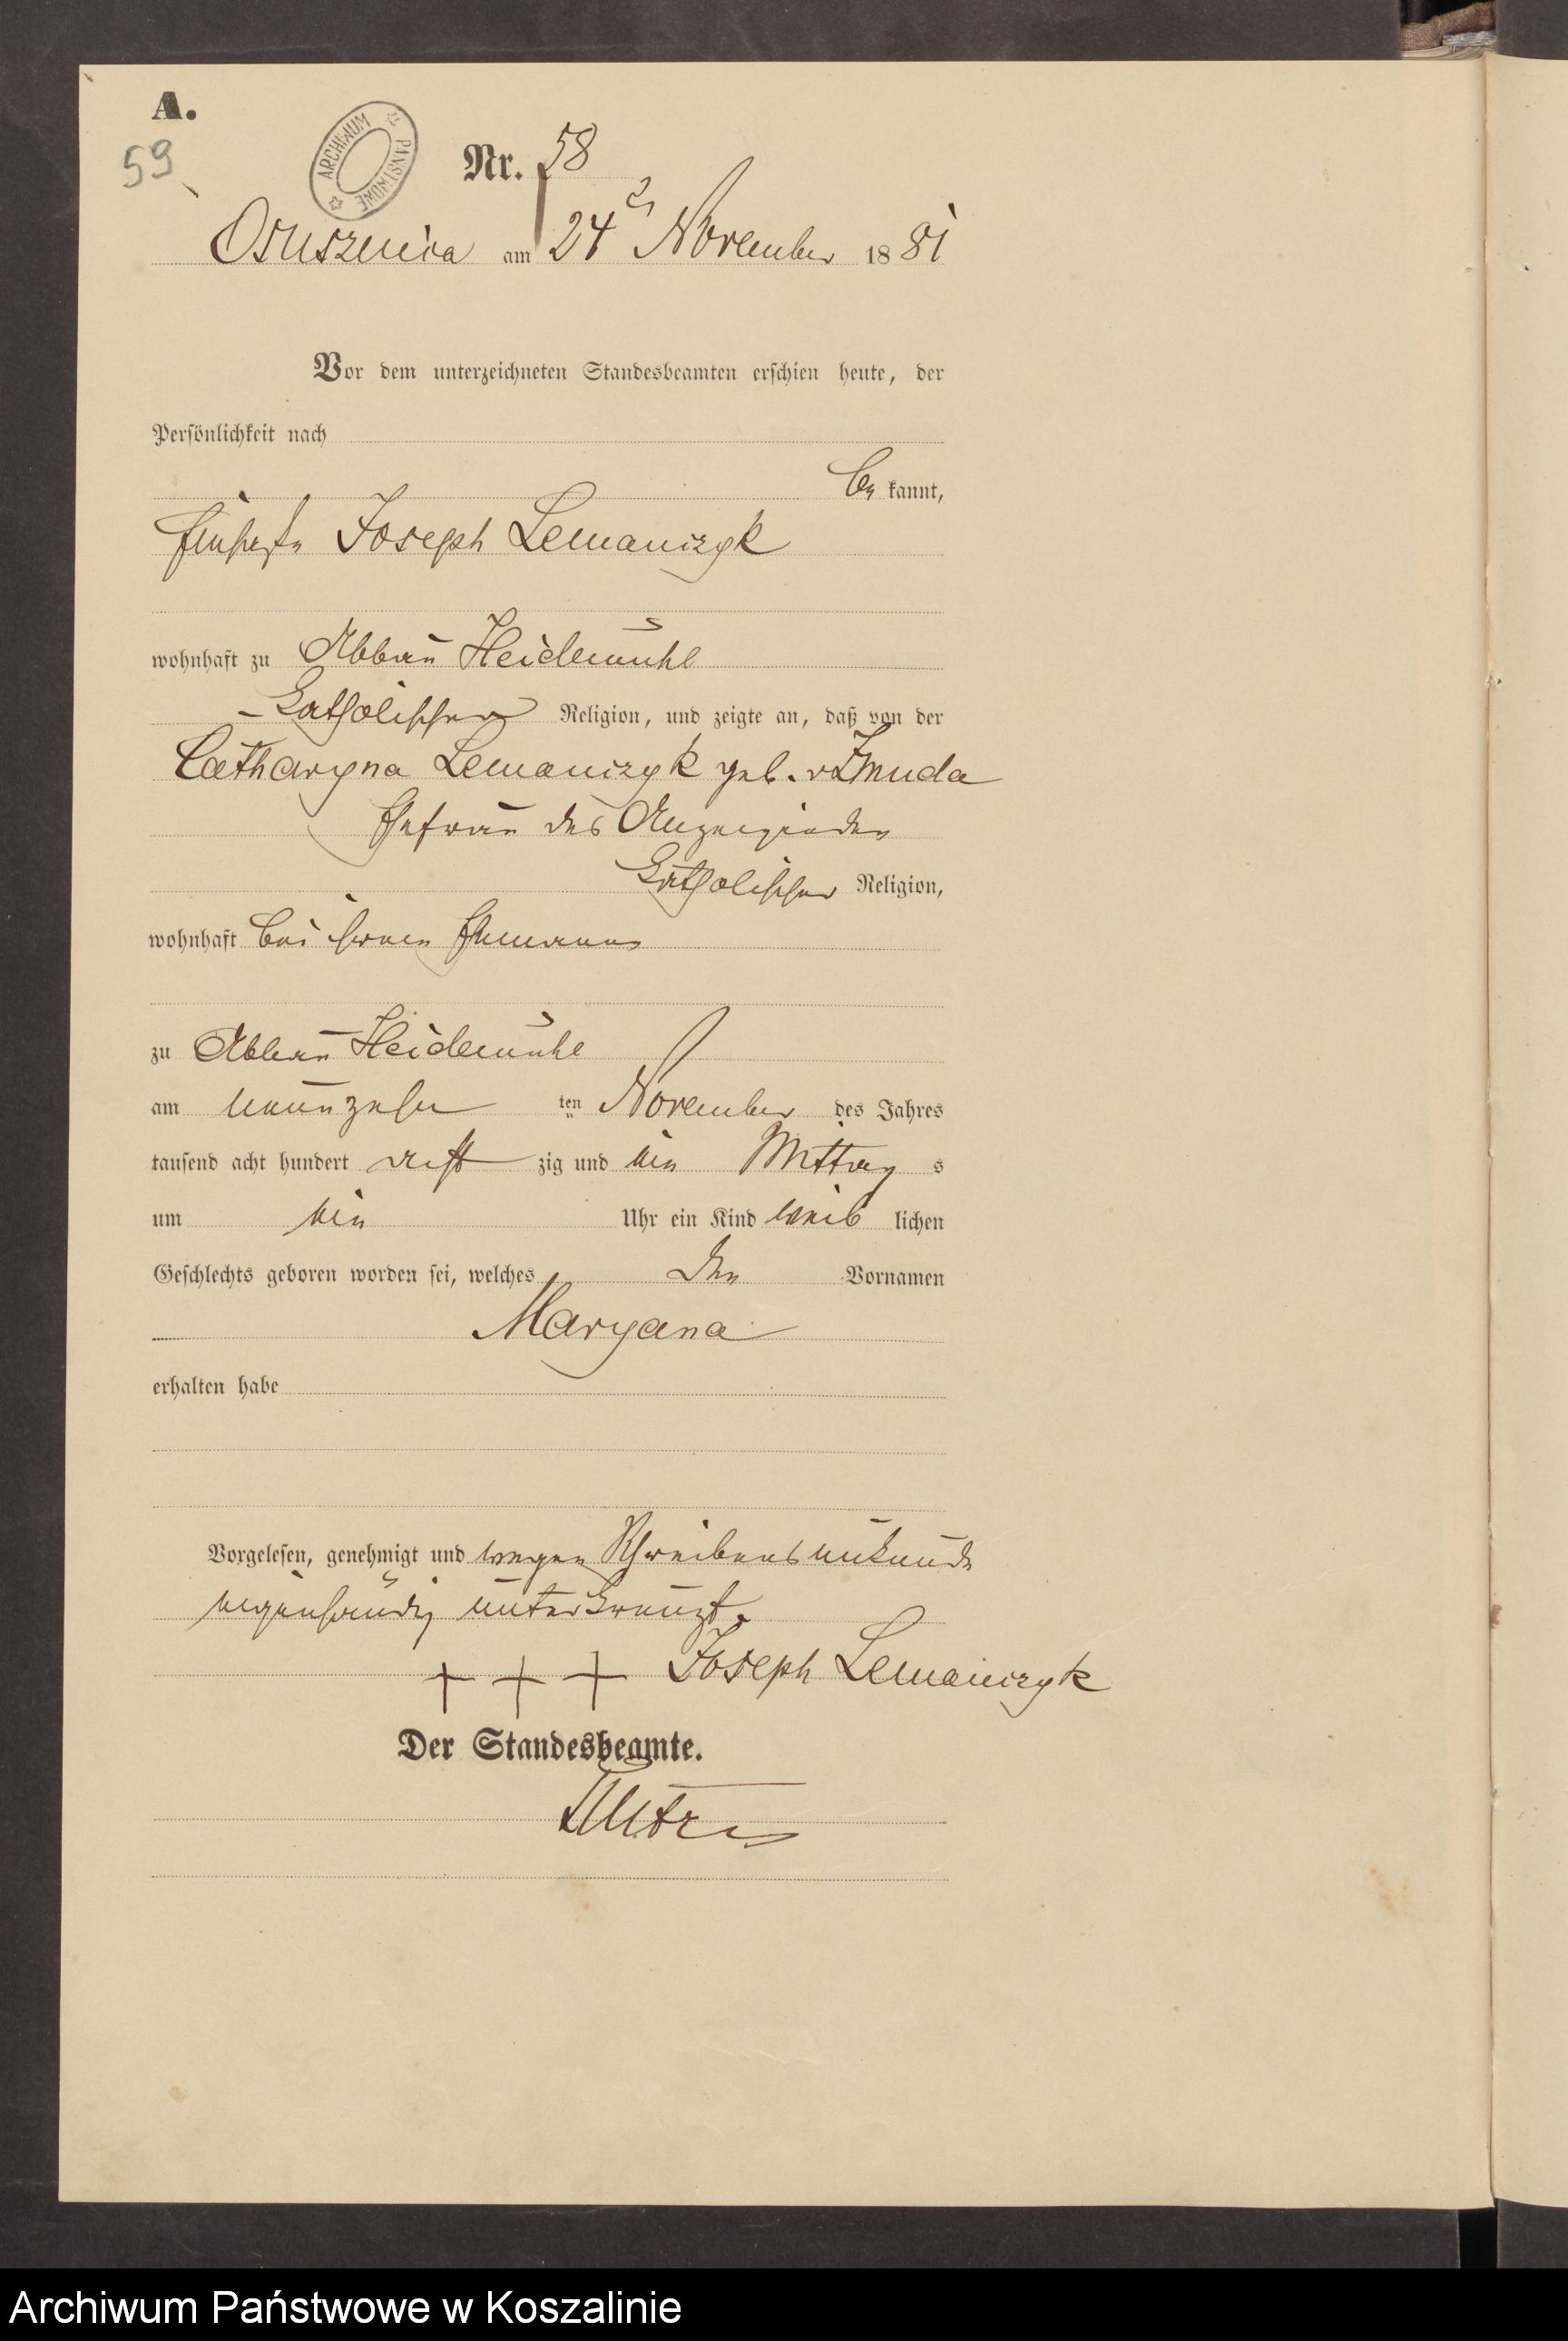 A.
59
ARCHIWUM PAŃSTWOWE
Nr. 58
Osuszenica am 24 November 1881
Vor dem unterzeichneten Standesbeamten erschien heute, der
Persönlichkeit nach
be kannt,
Joseph Lemanczyk
wohnhaft zu Abbau Heidemühl
katholischer Religion, und zeigte an, daß von der
Catharyna Lemanczyk geb. v Zmuda
Ehefrau des Anzeigenden
katholischer Religion,
wohnhaft bei ihrem Ehemanne
zu Abbau Heidemühl
am neunzehn ten November des Jahres
tausend acht hundert acht zig und ein Mittag s
um ein Uhr ein Kind weib lichen
Geschlechts geboren worden sei, welches den Vornamen
Maryana
erhalten habe
Vorgelesen, genehmigt und wegen Schreibensunkunde
eigenhändig unterkreuzt.
+ + + Joseph Lemanczyk
Der Standesbeamte.
Archiwum Państwowe w Koszalinie